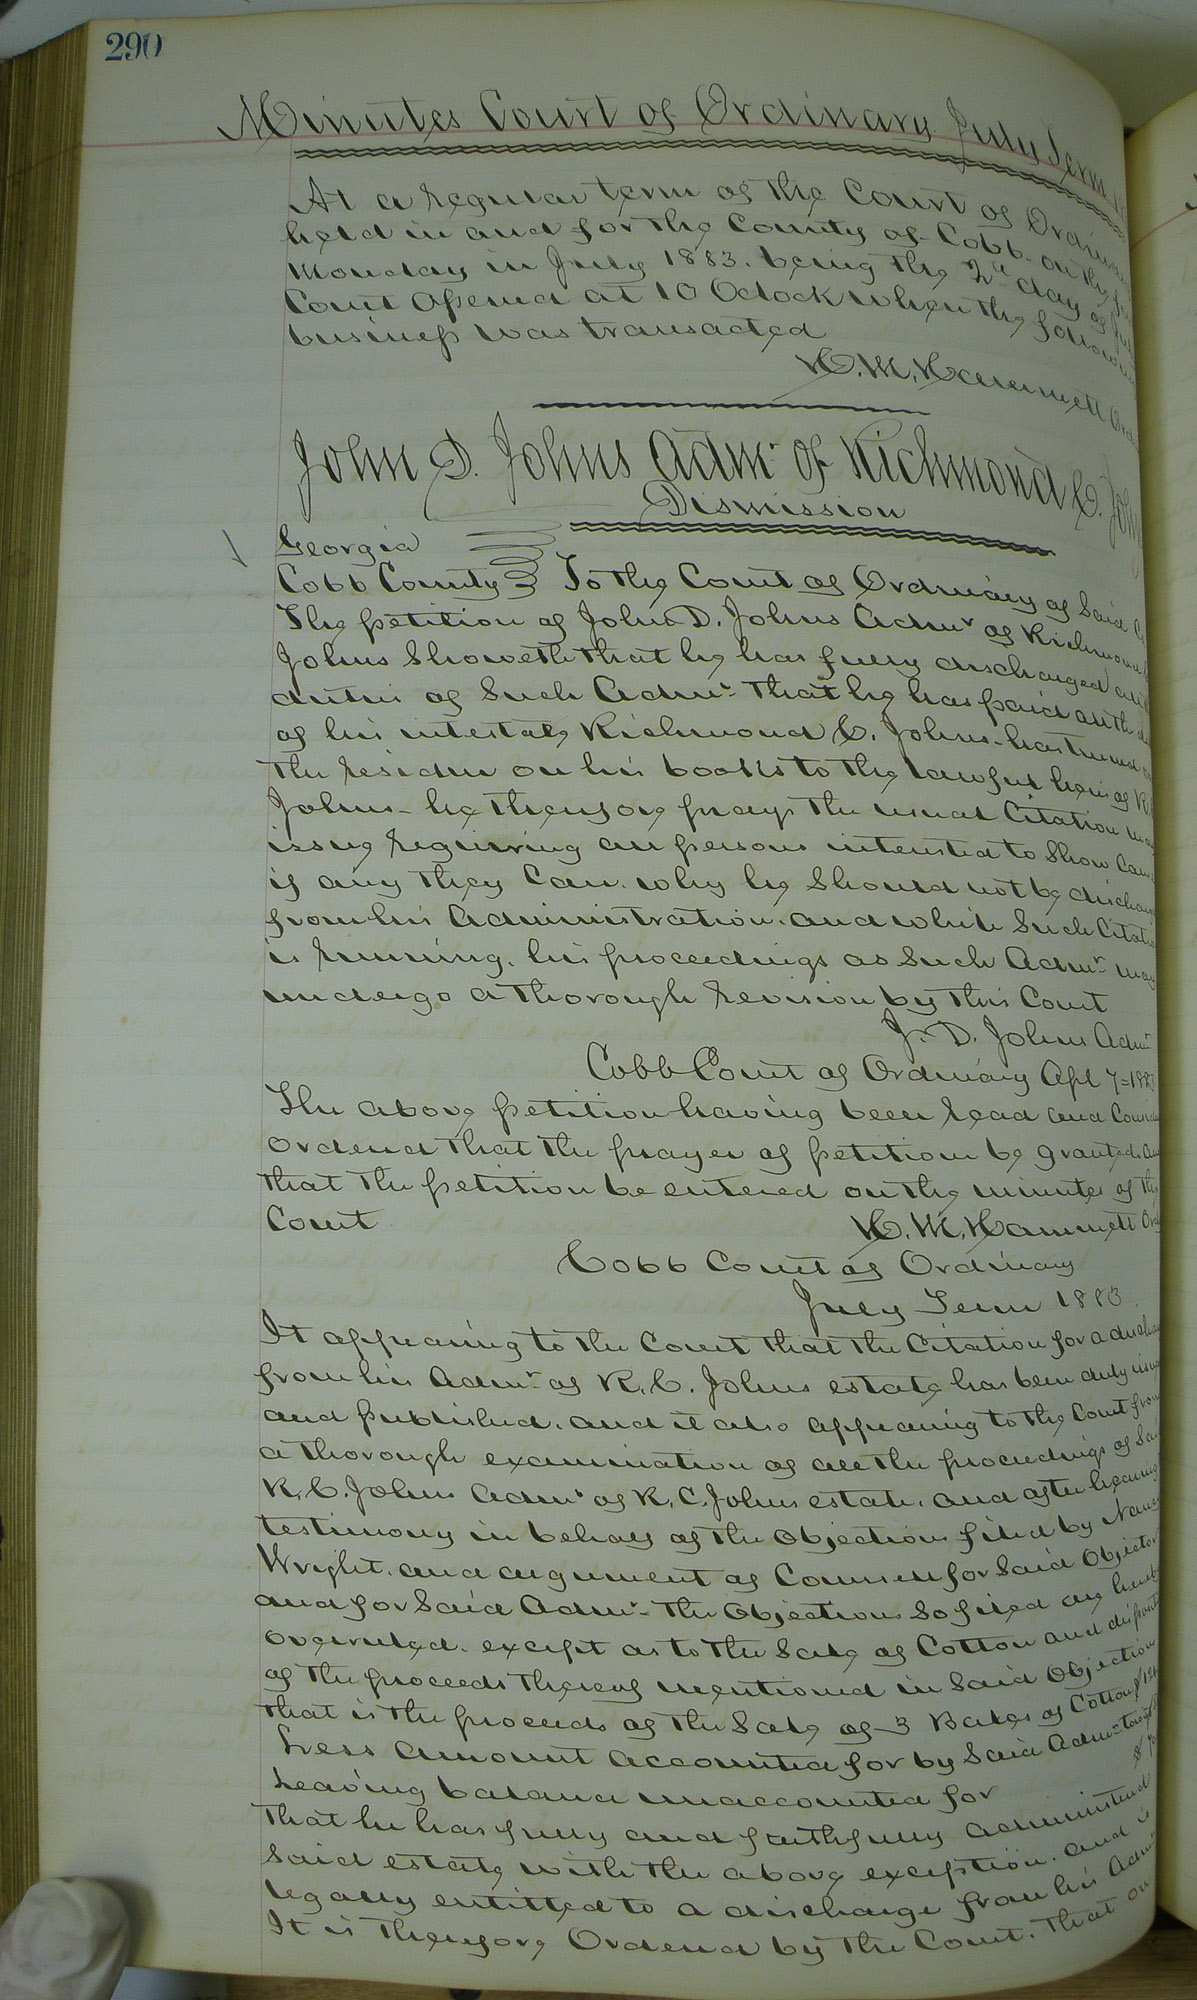 290
Minutes Court of Ordinary July Term
At a regular term of the Court of
held in and for the County of Cobb on the
Monday in July 1883. being the 2d day of
Court Opened at 10 Oclock when the
business was transacted
H. M. Hammett
John D. Johns Admr of Richmond C.
Dismission
Georgia
Cobb County To the Court of Ordinary of Said
The petition of John D. Johns Admr of Richmond
Johns Showeth that he has fully discharged
duties of Such Admr. that he has paid
of his intestate Richmond C. Johns. has turned
the residue on his books to the lawful heirs of
Johns. he therefore prays the usual Citation may
issue requiring all persons intersted to Show Cause
if any they Can. why he Should not be
from his Administration. and while Such
is running. his proceedings as Such Admr. may
undergo a thorough revision by this Court
J. D. Johns Admr
Cobb Court of Ordinary Apl 7=
The above petition having been read and
ordered that the prayer of petition be granted
that the petition be entered on the minutes of the
Court H. M. Hammett
Cobb Court of Ordinary
July Term 1883.
It appearing to the Court that the Citation for a
from his Admr. of R. C. Johns estate has been duly
and published. and it also appearing to the Court from
a thorough examination of all the proceedings of
R. C. Johns Admr of R. C. Johns estate. and after hearing
testimony in behalf of the Objections filed by
Wright. and argument of Counsell for Said Objector
and for Said Admr. the Objections So filed are hereby
overruled. except as to the Sale of Cotton and
of the proceeds thereof mentioned in Said Objection
that is the proceeds of the Sale of 3 Bales of Cotton
Less amount accounted for by Said Admr
Leaving balance unaccounted for
That he has fully and faithfully administered
Said estate with the above exception. and is
legally entitled to a discharge from his
It is therefore Ordered by the Court. that